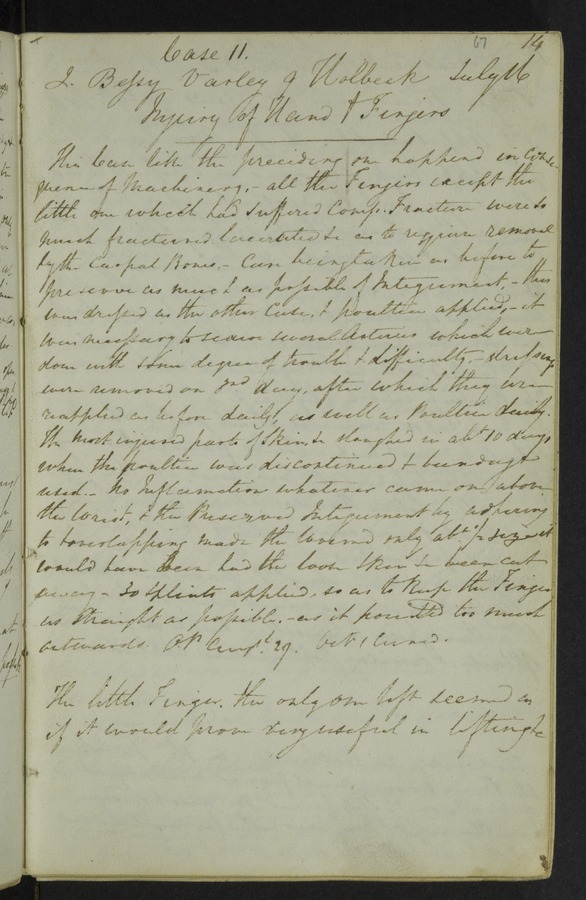 67 14
Case 11.
2. Bessy Varley of Holbeck July 16
Injury of Hand & Fingers
This Case like the preceiding one happend in conse-
quence of Machinery, - all the Fingers except the
little one which had suffered Comp. Fracture were so
much fractured lacerated &c as to require removal
by the Carpal Bones, - Care being taken as before to
preserve as much as possible of Integument, - this
was dressed as the other Case, & poultice applied, - it
was necessary to secure several Arteries which were
done with some degree of trouble & difficulty, - dressings
were removed on 3rd day, after which they were
reapplied as before daily, as well as Poultice daily.
The most injured parts of Skin &c sloughed in abt 10 days
when the poultice was discontinued & bandage
used. - No Inflamation whatever came on above
the Wrist, & the Preserved Integument by adhering
to & overlapping made the wound only abt 1/2 size it
would have been had the loose Skin &c been cut
away - 30 Splints applied, so as to keep the Finger
as straight as possible, - as it pointed too much
outwards. OP Augt. 29. Oct 1 Cured.
The little Finger, the only one left seemed as
if it would prove very useful in lifting &c